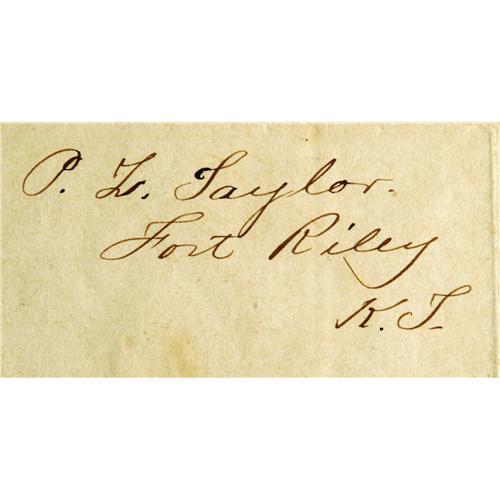 P. Z. Taylor.
Fort Riley
K. T.